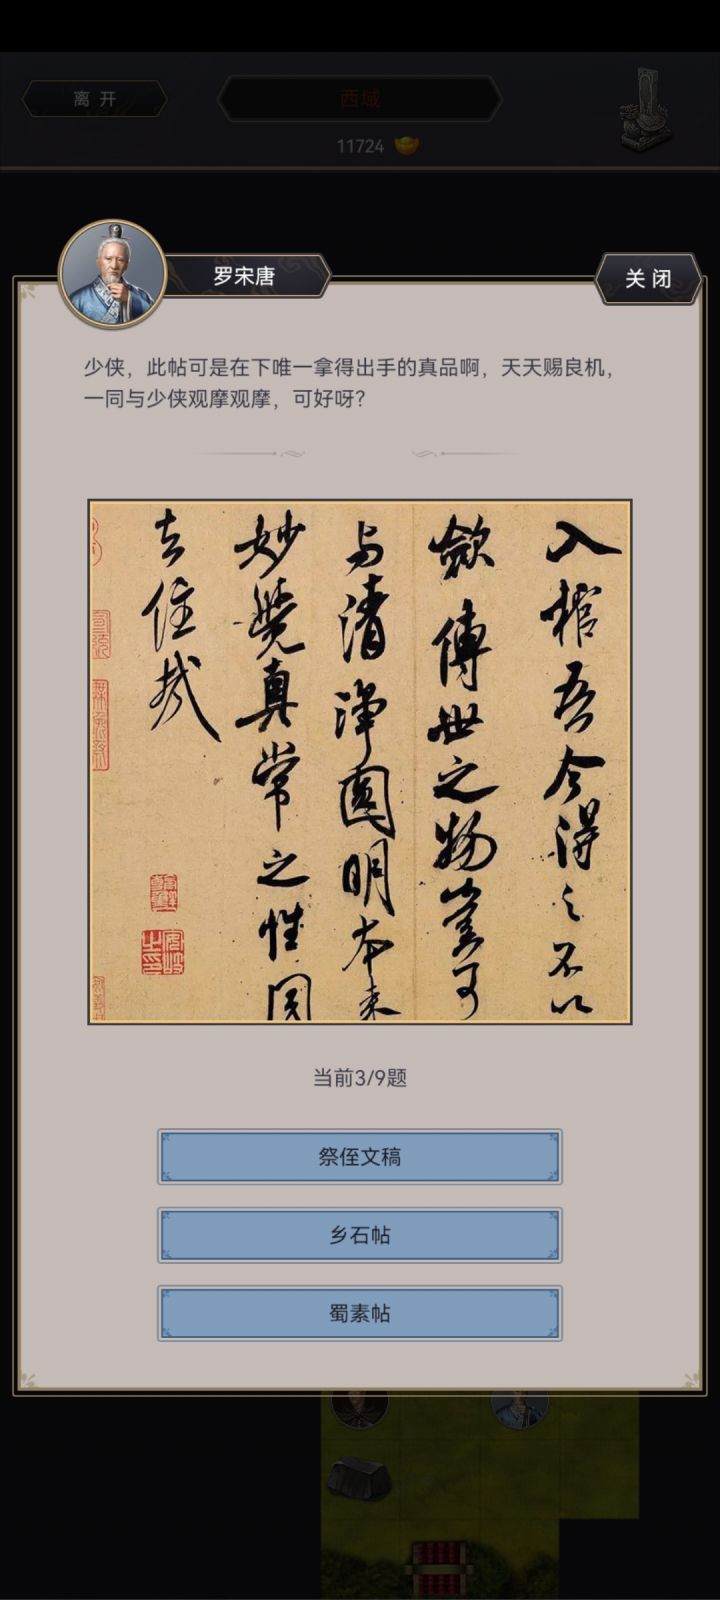 离开
西域
11724
罗宋唐
关闭
少侠，此帖可是在下唯一拿得出手的真品啊，天天赐良机，
一同与少侠观摩观摩，可好呀？
入棺吾今得之不以
歛傳世之物豈可
与清淨圓明本来
妙覺真常之性同
去住哉
当前3/9题
祭侄文稿
乡石帖
蜀素帖